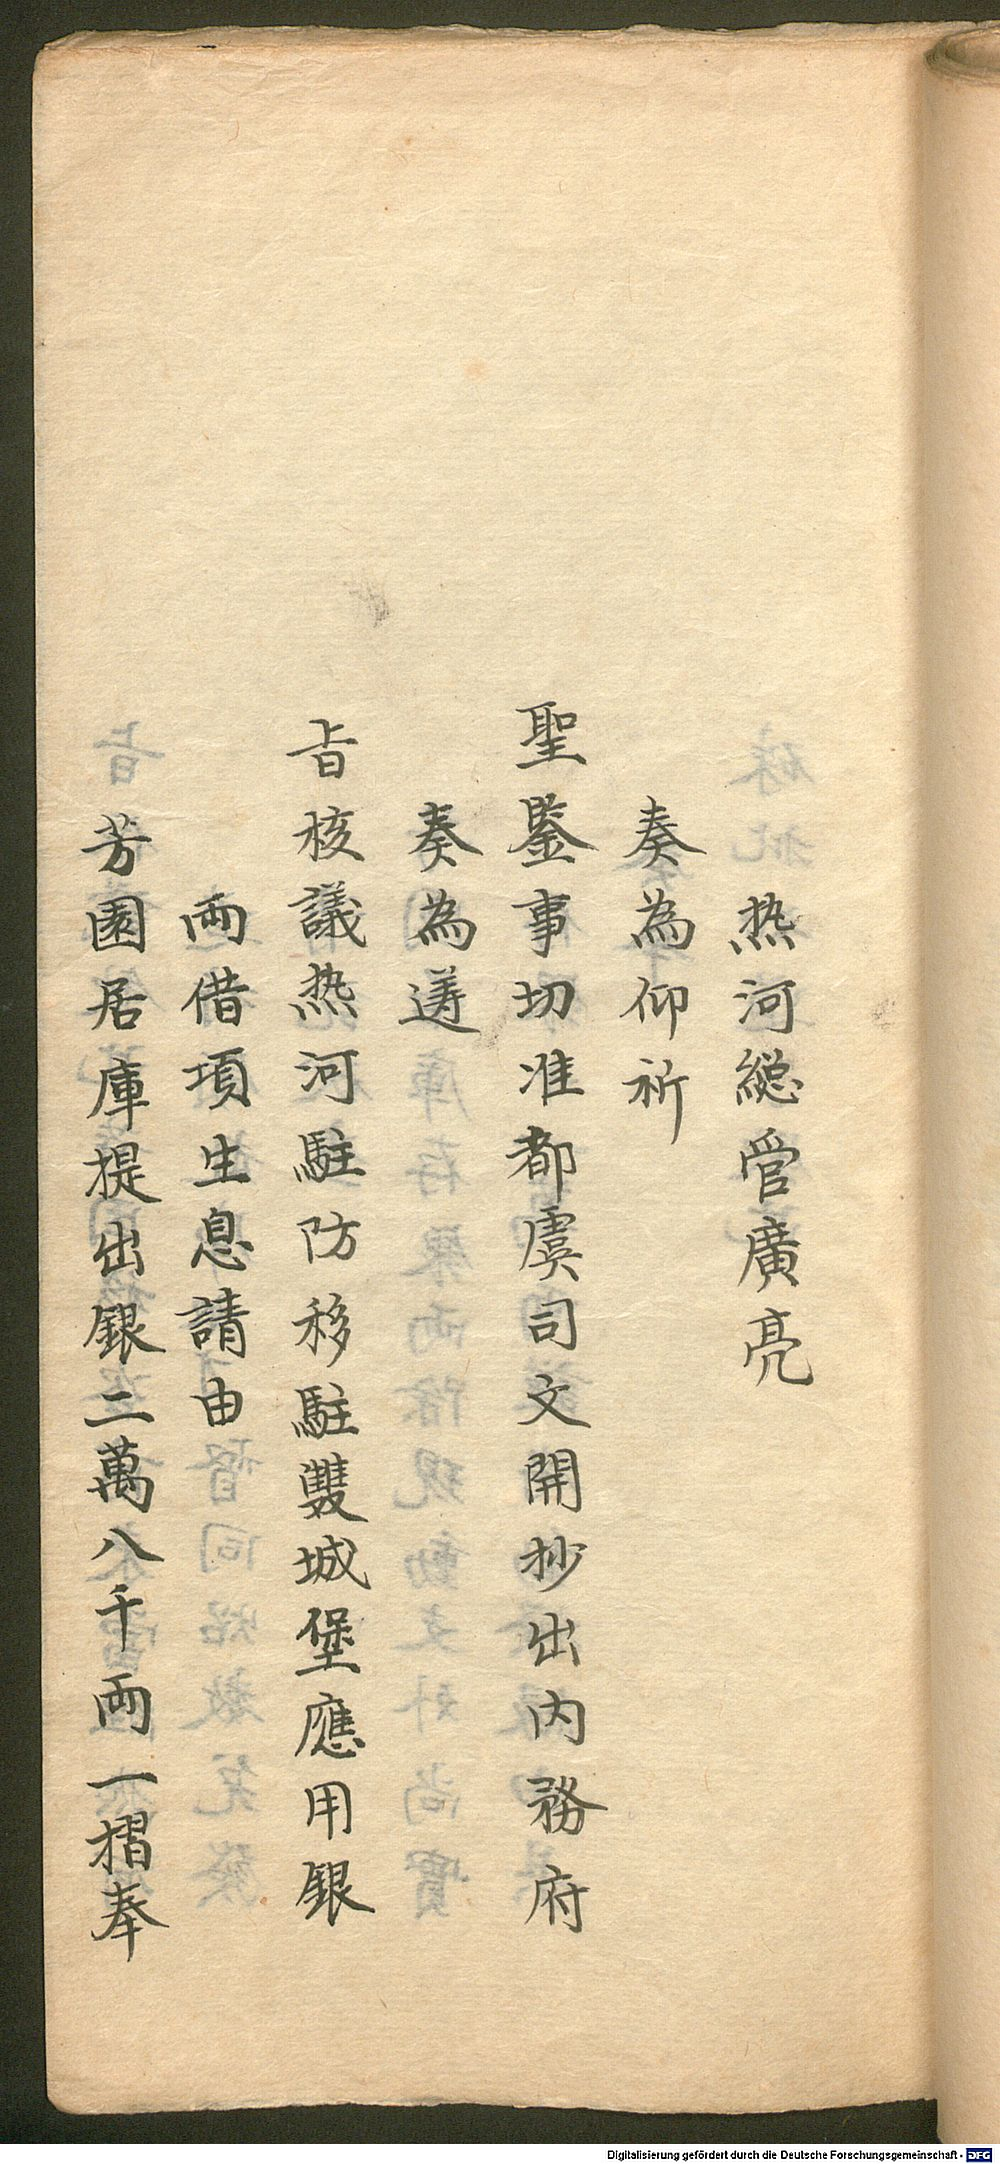 热河總管廣亮
奏為仰祈
聖鑒事切准都虞司文開抄出内務府
奏為遵
旨核議热河駐防移駐雙城堡應用銀
両借項生息請由
芳園居庫提出銀二萬八千両一摺奉
Digitalisierung gefördert durch die Deutsche Forschungsgemeinschaft - DFG